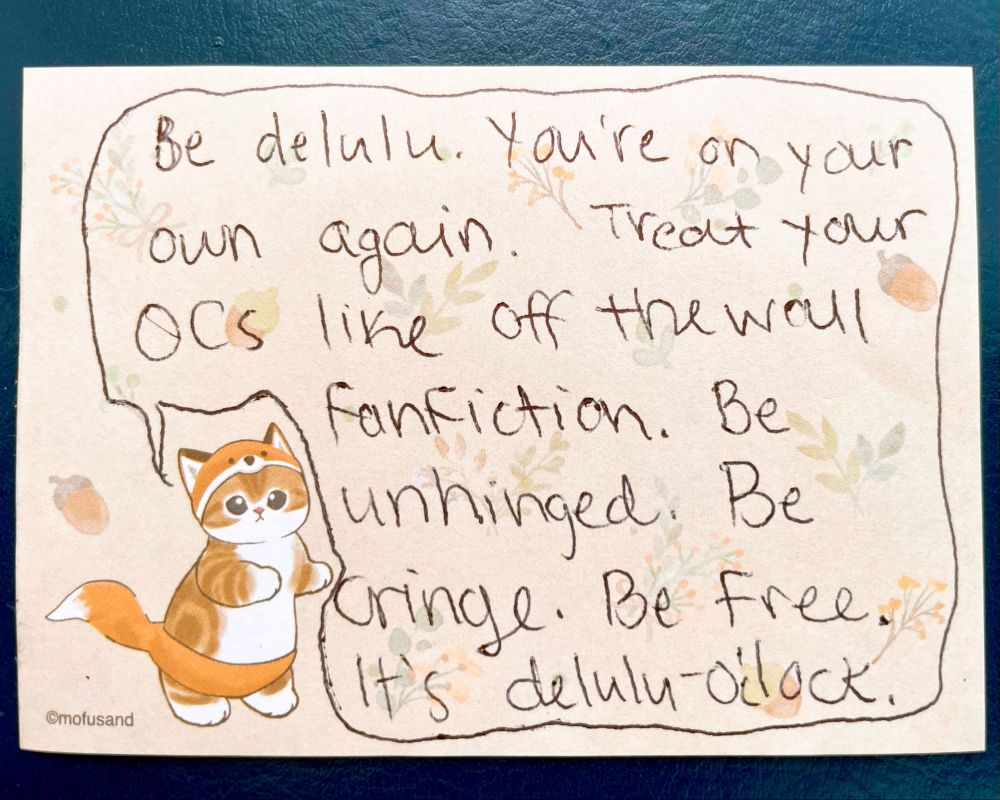 Be delulu. You're on your
own again. Treat your
OCs like off the wall
fanfiction. Be
unhinged. Be
cringe. Be free.
It's delulu-o'clock.
©mofusand